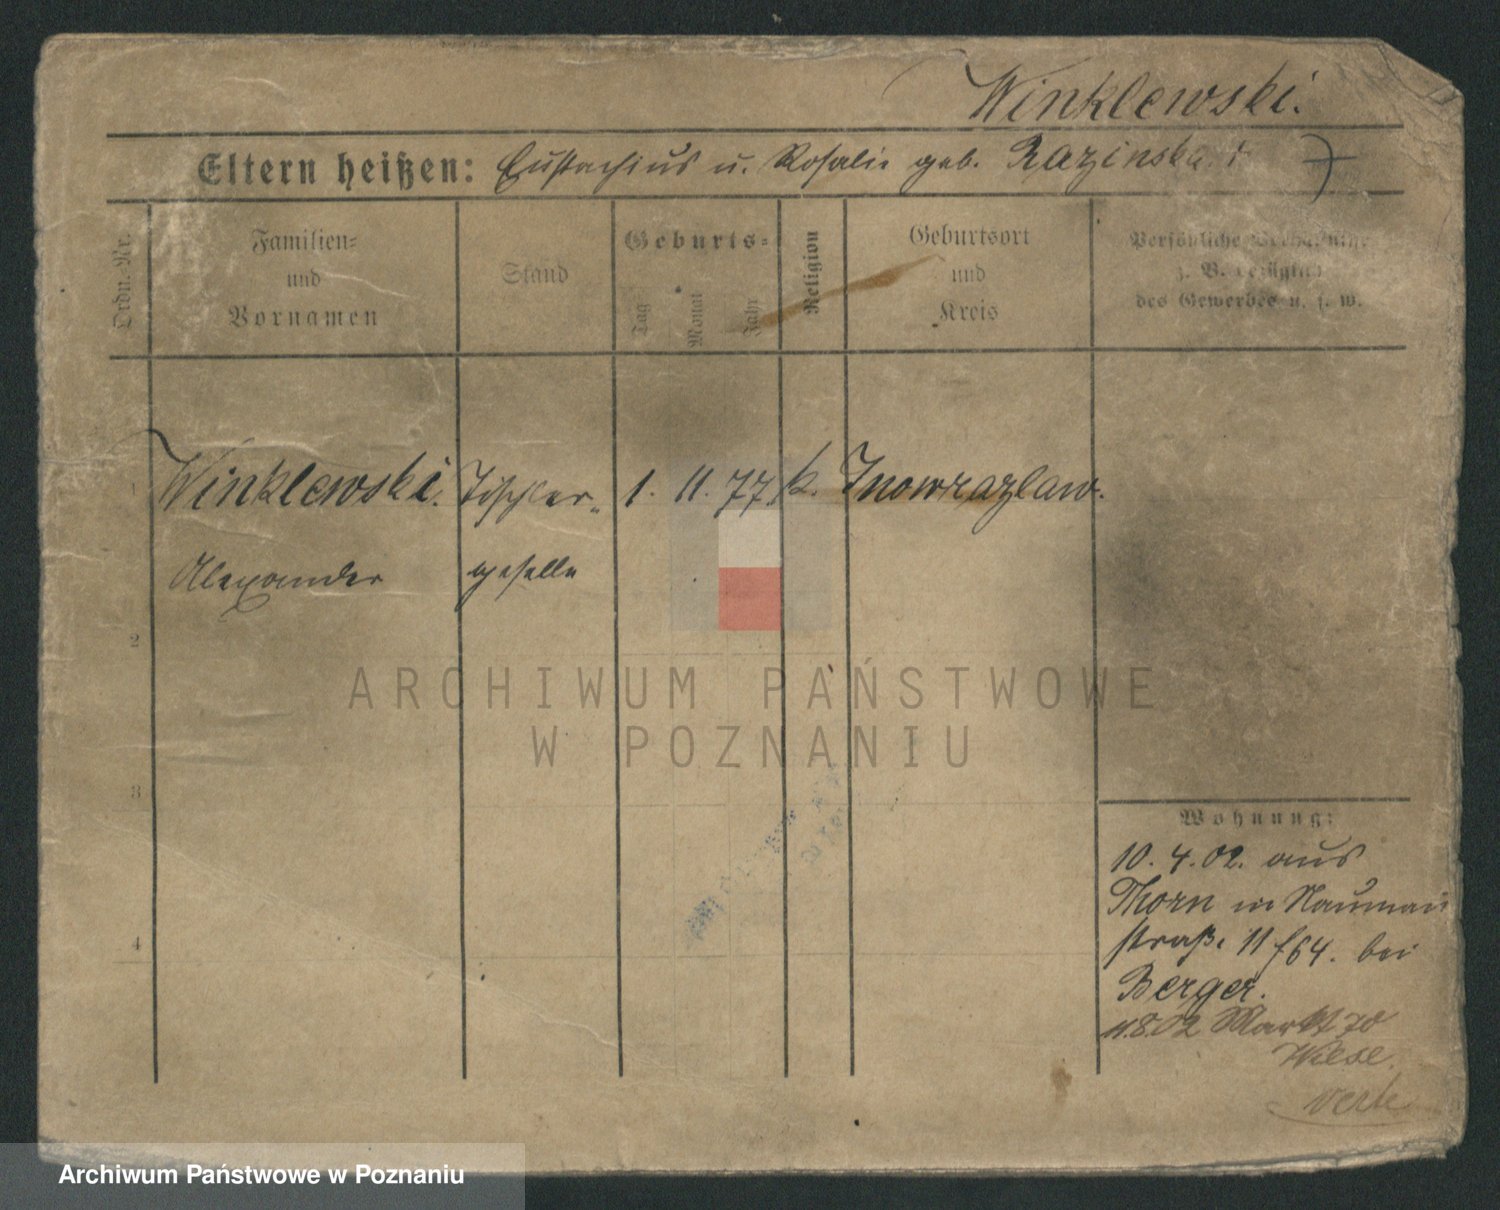 Winklewski.
Eltern heißen: Eustachius u. Rosalie geb. Razinska
Ordn. Nr.
Familien-
und
Vornamen
Stand
Geburts-
Tag
Monat
Jahr
Religion
Geburtsort
und
Kreis
Persönliche
z. B. bezüglich
des Gewerbes u. s. w.
1 Winklewski. Tischler- 1. 11. 77. k. Inowrazlaw.
Alexander geselle
2
3
4
Wohnung:
10. 4. 02. aus
Thorn in Nauman
straße 11 f64. bei
Berger.
11.8.02 Markt 70
Wiese.
ARCHIWUM PAŃSTWOWE
W POZNANIU
Archiwum Państwowe w Poznaniu